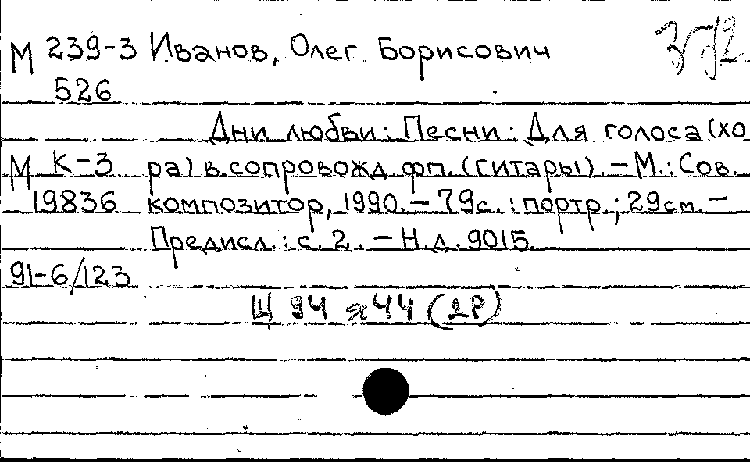 М 239-3 Иванов, Олег Борисович
526
Дни любви: Песни: Для голоса (хо
М К-3 ра) в сопровожд. фп. (гитары). – М.: Сов.
19836 композитор, 1990. – 79с.: портр.; 29см. –
Предисл.: с. 2. – Н.д. 9015.
91-6/123
Щ 94 я 44 (2Р)